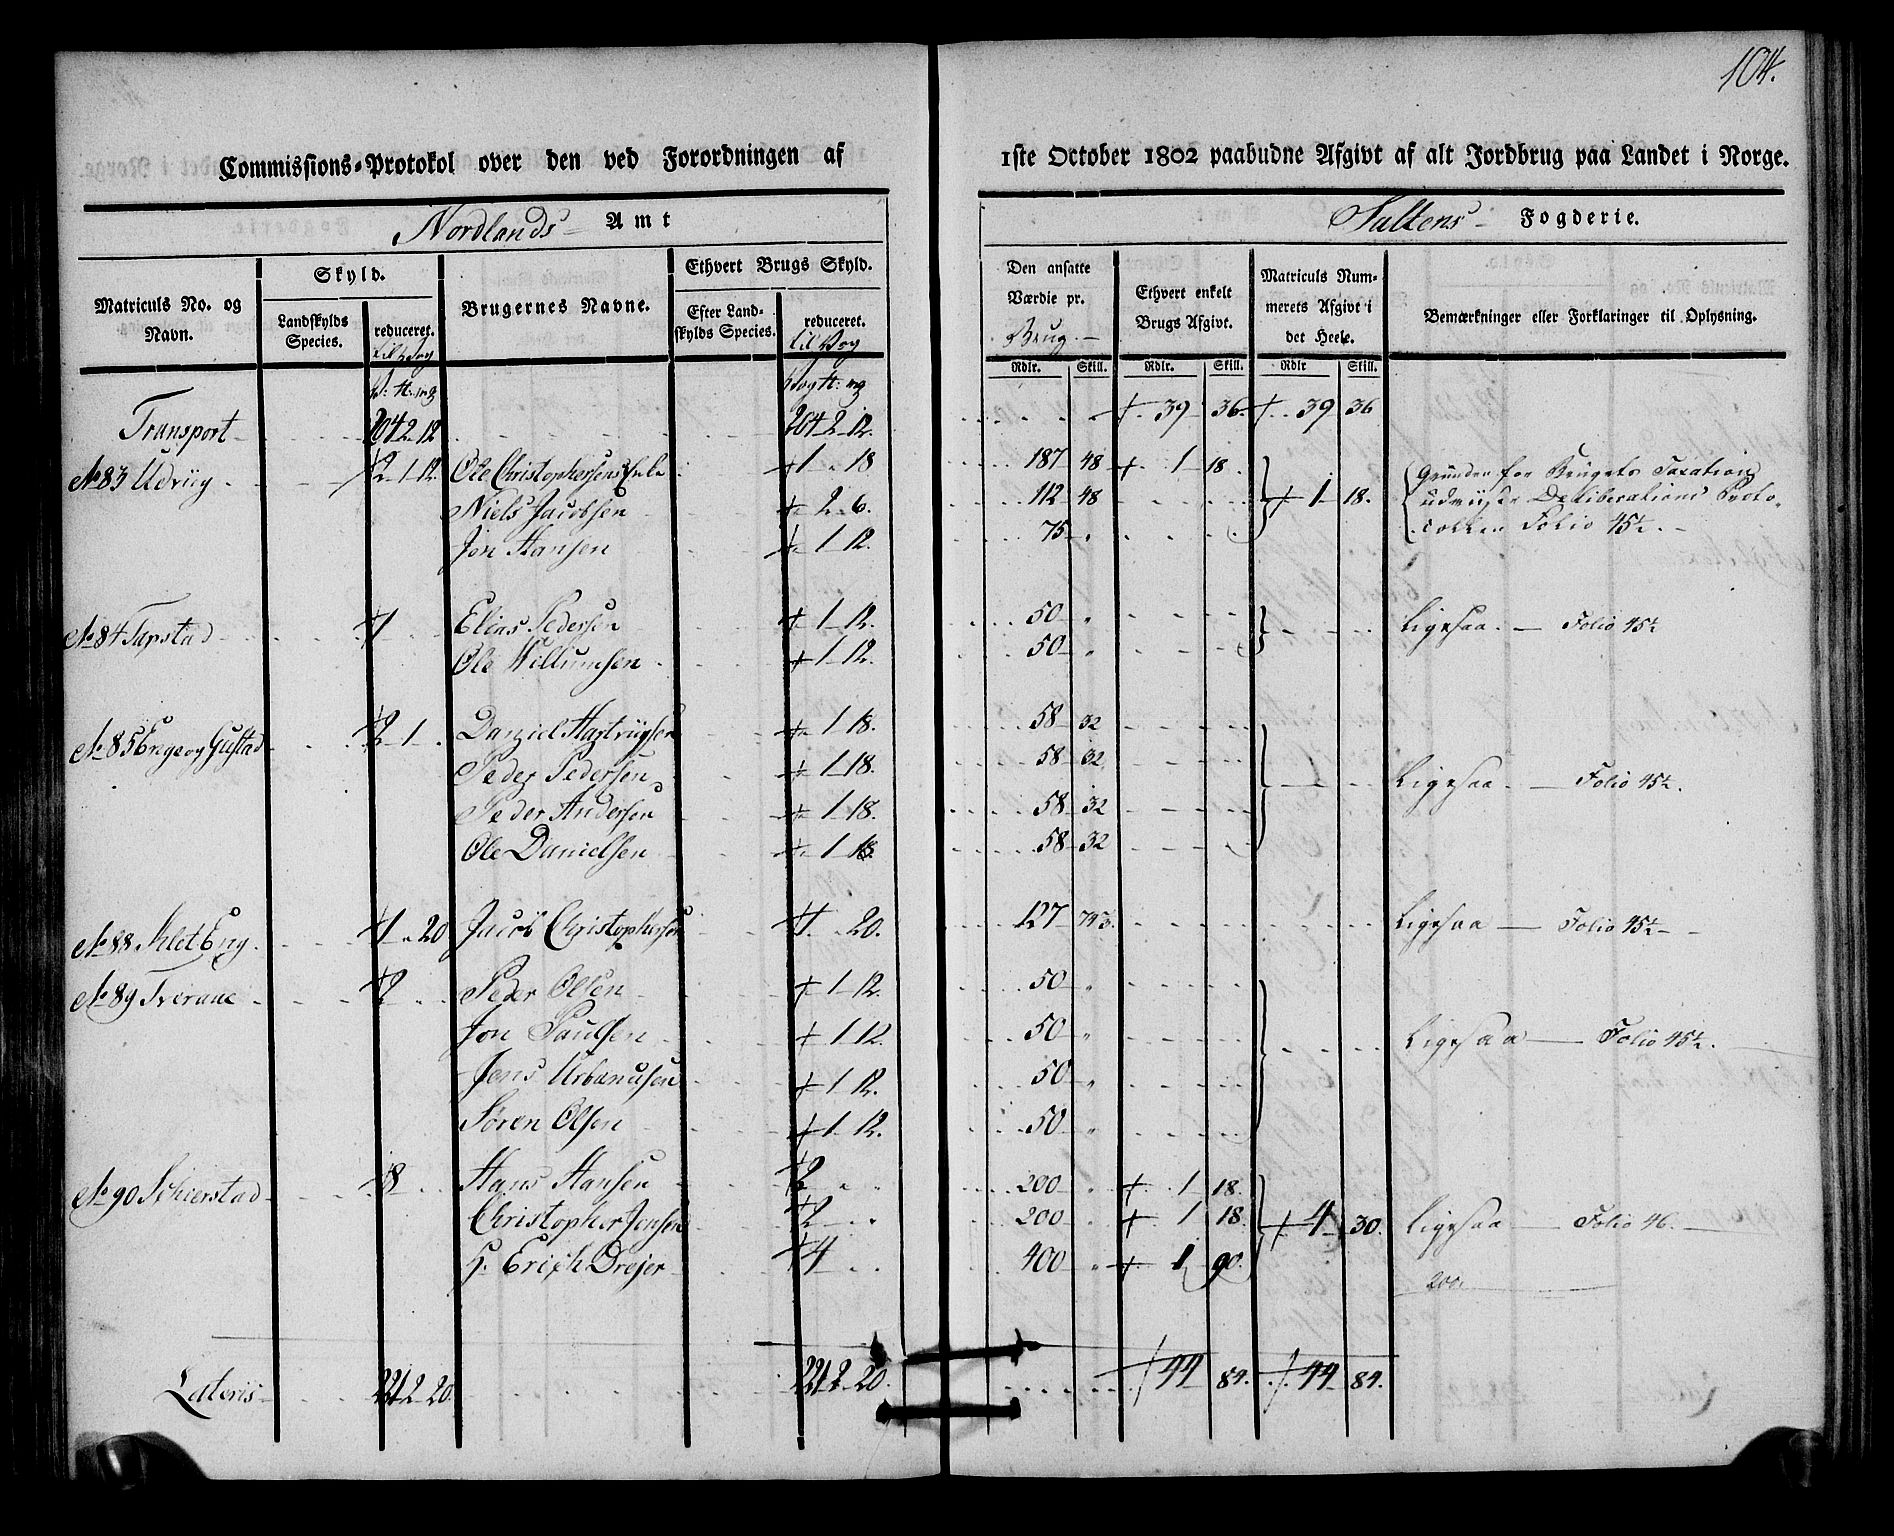 104.
Commissions-Protokol over den ved Forordningen af 1ste October 1802 paabudne Afgivt af alt Jordbrug paa Landet i Norge.
Nordlands Amt Saltens Fogderie.
Matriculs No. og Navn. Skyld. Landskylds Species. reduceret. til Vog Brugernes Navne. Ethvert Brugs Skyld. Efter Landskylds Species. reduceret. til Vog Den ansatte Værdie pr. Brug Ethvert enkelt Brugs Afgivt. Matriculs Nummerets Afgivt i det Heele. Bemærkninger eller Forklaringer til Oplysning.
Rdlr. Skill. Rdlr. Skill. Rdlr Skill.
Transport 204 2 12 204 2 12 39 36 39 36
No 83 2 1 12 Ole Christophersens Enke 1 18 187 48 1 18 Grunden for Brugets Taxation
Niels Jacobsen 2 6 112 48 1 18 udviiser Deliberations Proto-
Jon Hansen 1 12 75 collen Folio 45½
No 84 Tapstad 1 Elias Pedersen 1 12 50 Ligesaa Folio 45½
Ole Willumsen 1 12 50
No 85 Enge og Gustad 2 1 Daniel 1 18 58 32
Peder Pedersen 1 18 58 32 Ligesaa Folio 45½
Peder Andersen 1 18 58 32
Ole Danielsen 1 18 58 32
No 88 1 20 Jacob Christophersen 1 20 127 Ligesaa Folio 45½
No 89 Tveraae 2 Peder Olsen 1 12 50
Jon Paulsen 1 12 50 Ligesaa Folio 45½
Jens Urbanusen 1 12 50
Søren Olsen 1 12 50
No 90 Schierstad 8 Hans Hansen 2 200 1 18
Christopher Jensen 2 200 1 18 4 30 Ligesaa Folio 46.
H. Erich Drejer 4 400 1 90
200
Lateris 221 2 20 221 2 20 44 84 44 84